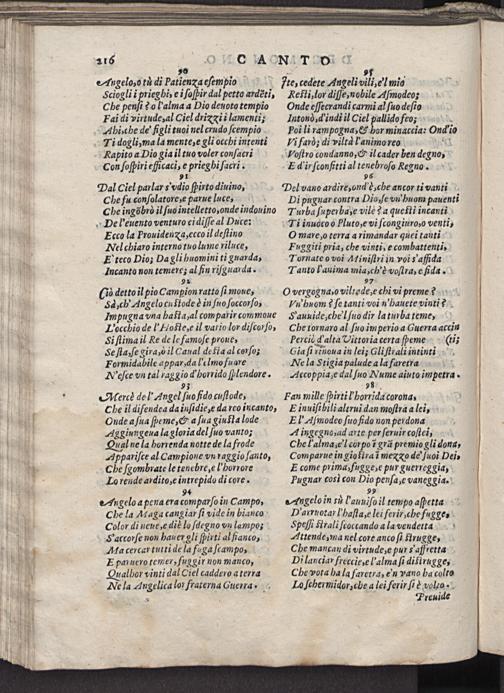 216
CANTO
90
Angelo, o tù di Patienza esempio
Sciogli i prieghi, e i sospir dal petto ardēti,
Che pensi? o l'alma a Dio denoto tempio
Fai di virtude, al Ciel drizzi i lamenti;
Ahi, che de' figli tuoi nel crudo scempio
Ti dogli, ma la mente, e gli occhi intenti
Rapito a Dio gia il tuo voler consacri
Con sospiri efficaci, e prieghi sacri.
91
Dal Ciel parlar s'vdio spirto diuino,
Che fu consolatore, e parue luce,
Che ingōbrò il suo intelletto, onde indouino
De l'euento venturo ci disse al Duce:
Ecco la Prouidenza, ecco il destino
Nel chiaro interno tuo lume riluce,
E' teco Dio; Da gli huomini ti guarda,
Incanto non temere; al fin risguarda.
92
Ciò detto il pio Campion ratto si moue,
Sà, ch'Angelo custode è in suo soccorso,
Impugna vna hasta, al comparir commoue
L'occhio de l'Hoste, e il vario lor discorso,
Si stima il Re de le famose proue,
Se sta, se gira, ò il Caual desta al corso;
Formidabile appar, da l'elmo fuore
N'esce vn tal raggio d'horrido splendore.
93
Mercè de l'Angel suo fido custode,
Che il difendea da insidie, e da reo incanto,
Onde a sua speme, & a sua giusta lode
Aggiungea la gloria del suo vanto;
Qual ne la horrenda notte de la frode
Apparisce al Campione vn raggio santo,
Che sgombrate le tenebre, e l'horrore
Lo rende ardito, e intrepido di core.
94
Angelo a pena era comparso in Campo,
Che la Maga cangiar si vide in bianco
Color di neue, e diè lo sdegno vn lampo;
S'accorse non hauer gli spirti al fianco,
Ma cercar tutti de la fuga scampo,
E paruero temer, fuggir non manco,
Qualhor vinti dal Ciel caddero a terra
Ne la Angelica lor fraterna Guerra.
95
Ite, cedete Angeli vili, e'l mio
Resti, lor disse, nobile Asmodeo;
Onde essecrandi carmi al suo desio
Intonò, d'indi il Ciel pallido feo;
Poi li rampogna, & hor minaccia: Ond'io
Vi farò; di viltà l'animo reo
Vostro condanno, & il cader ben degno,
E d'ir sconfitti al tenebroso Regno.
96
Del vano ardire, ond'è, che ancor ti vanti
Di pugnar contra Dio, se vn'huom pauenti
Turba superba, e vile? a questi incanti
Ti inuoco o Pluto, e vi scongiuro, o venti,
O mare, o terra a rimandar quei tanti
Fuggiti pria, che vinti, e combattenti,
Tornate o voi Ministri in voi s'affida
Tanto l'anima mia, ch'è vostra, e fida.
97
O vergogna, o viltade, e chi vi preme?
Vn'huom? se tanti voi n'hauete vinti?
S'auuide, che'l suo dir la turba teme,
Che tornaro al suo imperio a Guerra accin
Perciò d'alta Vittoria certa speme (ti;
Gia si rinoua in lei; Gli strali intinti
Ne la Stigia palude a la faretra
Accoppia, e dal suo Nume aiuto impetra.
98
Fan mille spirti l'horrida corona,
E inuisibili altrui dan mostra a lei,
E l'Asmodeo suo fido non perdona
A ingegno, ad arte per seruir costei,
Che l'alma, e'l corpo ī grā premio gli dona,
Comparue in giostra ī mezzo de' suoi Dei,
E come prima, fugge, e pur guerreggia,
Pugnar così con Dio pensa, e vaneggia.
99
Angelo in tù l'auuiso il tempo aspetta
D'arruotar l'hasta, e lei ferir, che fugge,
Spessi strali scoccando a la vendetta
Attende, ma nel core anco si strugge,
Che mancan di virtude, e pur s'affretta
Di lanciar freccie, e l'alma si distrugge,
Che vota ha la faretra, e'n vano ha colto
Lo schermidor, che a lei ferir si è volto.
Preuide